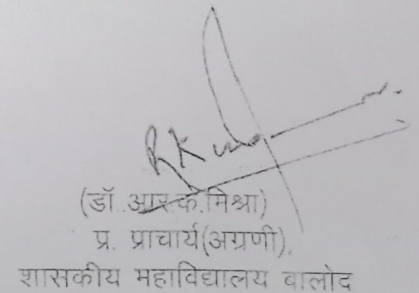 (डॉ. आर.के.मिश्रा)
प्र. प्राचार्य(अग्रणी),
शासकीय महाविद्यालय बालोद